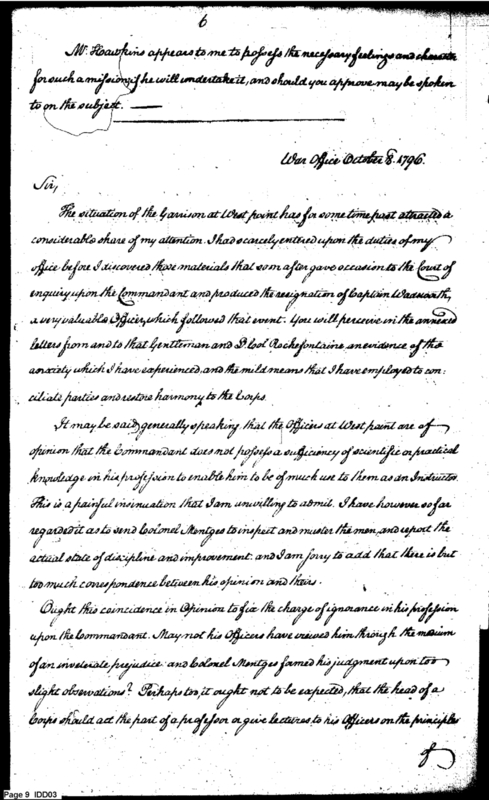 6
Mr. Hawkins appears to me to possess the necessary feelings and character
for such a mission, if he will undertake it, and should you approve may be spoken
to on the subject. —
War Office October 8. 1796.
Sir,
The situation of the Garrison at West point has for some time past attracted a
considerable share of my attention. I had scarcely entered upon the duties of my
office before I discovered those materials that soon after gave occasion to the Court of
enquiry upon the Commandant and produced the resignation of Captain Wadsworth,
a very valuable Officer, which followed that event. You will perceive in the annexed
letters from and to that Gentleman and Lt Col Rochefontaine, an evidence of the
anxiety which I have experienced, and the mild means that I have employed to con:
ciliate parties and restore harmony to the Corps.
It may be said, generally speaking that the Officers at West point are of
opinion that the Commandant does not possess a sufficiency of scientific or practical
knowledge in his profession to enable him to be of much use to them as an Instructor.
This is a painful insinuation that I am unwilling to admit. I have however so far
regarded it as to send Colonel Mentges to inspect and muster the men, and report the
actual state of discipline and improvement: and I am sorry to add that there is but
too much correspondence between his opinion and theirs.
Ought this coincidence in Opinion to fix the charge of ignorance in his profession
upon the Commandant. May not his Officers have viewed him through the medium
of an inveterate prejudice and Colonel Mentges formed his judgment upon too
slight observations? Perhaps too, it ought not to be expected, that the head of a
Corps should act the part of a professor or give lectures to his Officers on the principles
of
Page 9 IDD03